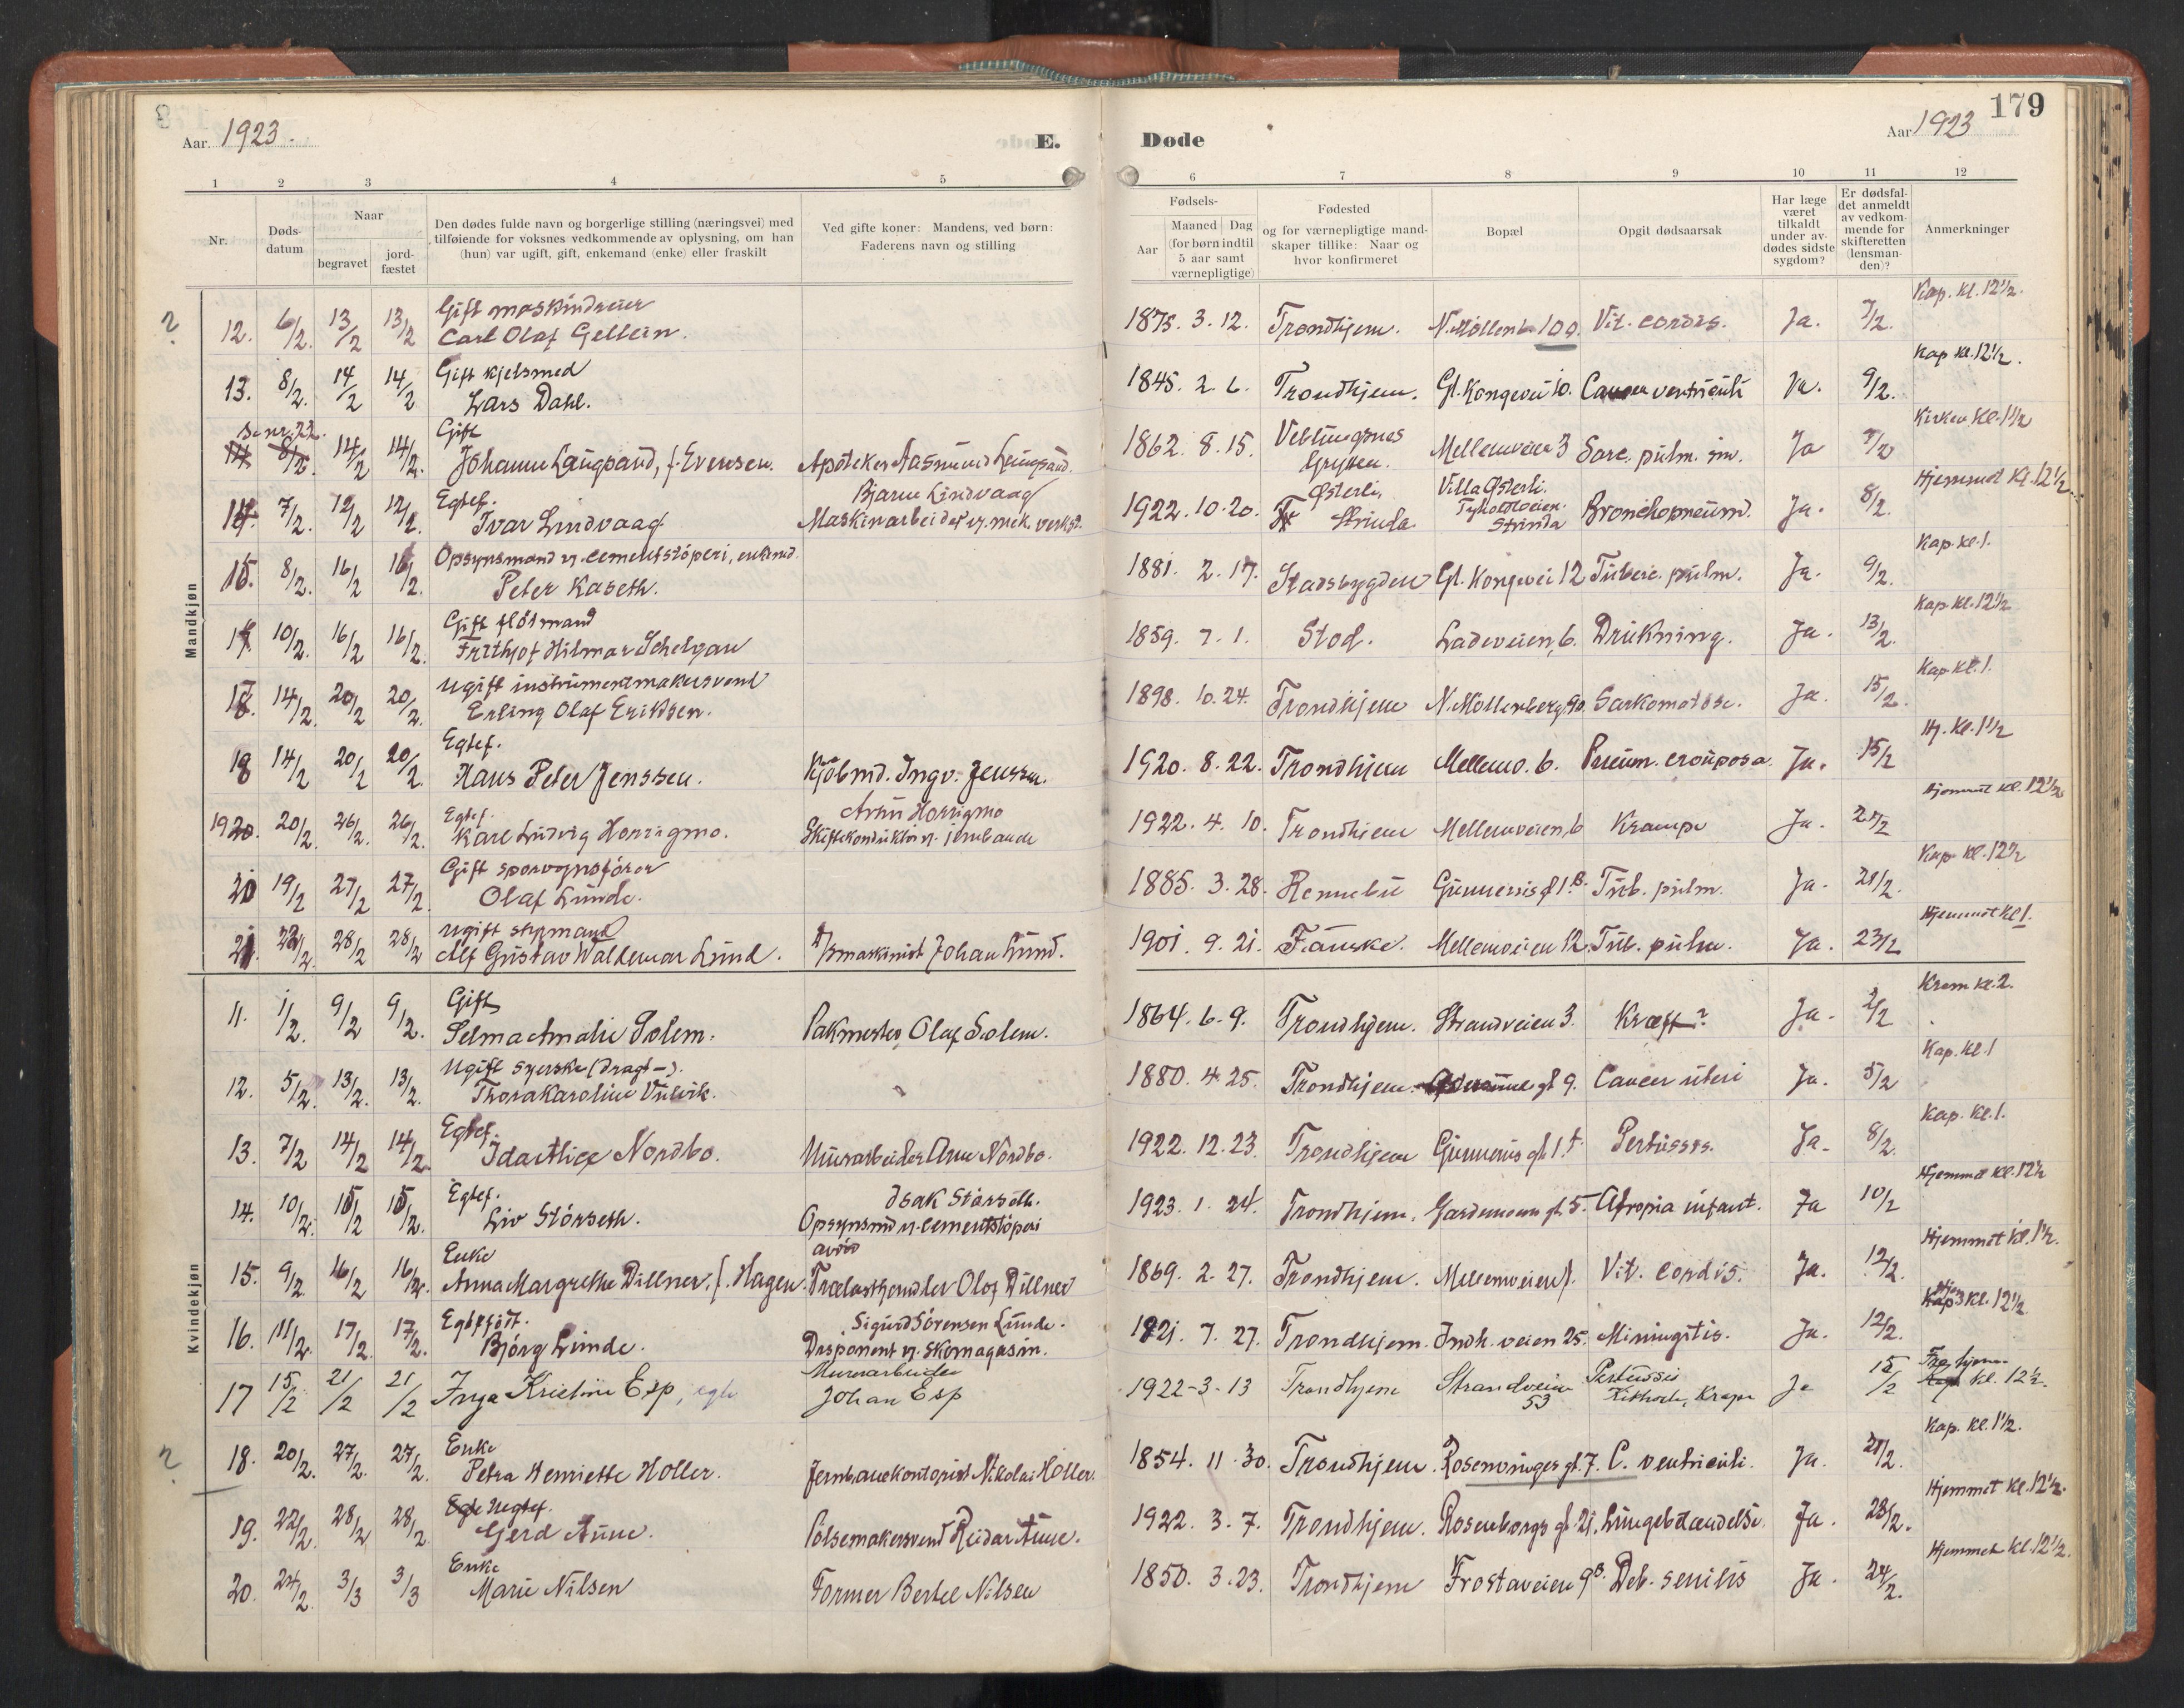 179
Aar 1923.
E.
Døde
Aar 1923
1 2 3 4 5 6 7 8 9 10 11 12
Nr.
Døds-
datum
Naar
begravet
jord-
fæstet
Den dødes fulde navn og borgerlige stilling (næringsvei) med
tilføiende for voksnes vedkommende av oplysning, om han
(hun) var ugift, gift, enkemand (enke) eller fraskilt
Ved gifte koner: Mandens, ved børn:
Faderens navn og stilling
Fødsels-
Aar
Maaned Dag
(for børn indtil
5 aar samt
værnepligtige)
Fødested
og for værnepligtige mand-
skaper tillike: Naar og
hvor konfirmeret
Bopæl
Opgit dødsaarsak
Har læge
været
tilkaldt
under av-
dødes sidste
sygdom?
Er dødsfal-
det anmeldt
av vedkom-
mende for
skifteretten
(lensman-
den)?
Anmerkninger
Mandkjøn
? Gift maskindreier Kap. kl. 12½.
12. 6/2. 13/2 13/2 Carl Olaf Gellein. 1875. 3. 12. Trondhjem. N. Møllenb. 100. Vit. cordis. Ja. 7/2.
Gift kjelsmed Kap kl. 12½.
13. 8/2. 14/2 14/2 Lars Dahl. 1845. 2. 6. Trondhjem. Gl. Kongevei 10. Cancer ventriculi Ja. 9/2.
Se nr. 22. Gift Kirken kl. 1½
14 8/2. 14/2 14/2. Johanne Laugsand, f. Evensen. Apoteker Aasmund Laugsand. 1862. 8. 15. Veblungsnes Grytten. Mellemveien 3 Sarc. pulm. sin. Ja 9/2
Egtef. Bjarne Lindvaag Østerli, Villa Østerli. Hjemmet kl. 12½
14. 7/2. 12/2 12/2. Ivar Lindvaag Maskinarbeider v. mek. verkst. 1922. 10. 20. Strinda Tyholtveien. Strinda Bronchopneum. Ja. 8/2.
Opsynsmand v. cementstøperi, enkemd. Kap. kl. 1.
15. 8/2. 16/2 16/2. Peter Kaseth. 1881. 2. 17. Stadsbygden Gl. Kongevei 12 Tuberc. pulm. Ja. 9/2.
Gift fløtmand Kap kl. 12½
17. 10/2. 16/2 16/2. Frithjof Hilmar Schelgau 1859. 7. 1. Stod. Ladeveien 6. Drukning. Ja. 13/2.
Ugift instrumentmakersvend Kap kl. 1.
18. 14/2. 20/2 20/2. Erling Olaf Eriksen. 1898. 10. 24. Trondhjem N. Møllenberg 90. Sarkomatose. Ja. 15/2.
Egtef. Hj. kl. 1½
18 14/2 20/2 20/2. Hans Peter Jenssen. Kjøbmd. Ingv. Jenssen. 1920. 8. 22. Trondhjem Mellemv. 6. Pneum. crouposa. Ja. 15/2
Egtef. Horrigmo Hjemmet kl. 12½
1920. 20/2. 26/2. 26/2. Karl Ludvig Horrigmo. Skiftekonduktør v. jernbane 1922. 4. 10. Trondhjem Mellemveien 6 Krampe Ja. 21/2
Gift sporvognsfører Kap. kl. 12½
20 19/2 27/2 27/2. Olaf Lunde. 1885. 3. 28. Rennebu Gunnerusgt 1.B. Tub. pulm. Ja. 21/2.
Ugift styrmand Hjemmet kl. 1.
21. 22/2. 28/2 28/2 Alf Gustav Waldemar Lund. maskinist Johan Lund. 1901. 9. 21. Fauske. Mellemveien 12. Tub. pulm. Ja. 23/2
Kvindekjøn
Gift Krem kl. 2.
11. 1/2. 9/2 9/2. Selma Amalie Solem. Pakmester Olaf Solem. 1864. 6. 9. Trondhjem. Strandveien 3. Kræft? Ja. 2/2
Ugift syerske (dragt-). Kap. kl. 1
12. 5/2. 13/2. 13/2. Thora Karoline Vulvik. 1880. 4. 25. Trondhjem. gt 9. Cancer uteri Ja. 5/2
Egtef. Kap. kl. 1.
13. 7/2 14/2 14/2. Ida Alice Nordbo. Murarbeider Arne Nordbo. 1922. 12. 23. Trondhjem Gunnerus gt. 1. Pertussis. Ja. 8/2.
Egtef. Isak Størseth. Hjemmet kl. 12½
14. 10/2. 15/2 15/2. Liv Størseth. Opsynsmd v. cementstøperi 1923. 1. 24. Trondhjem. Gardemoens gt. 5. Atropia infant. Ja 10/2
Enke avdød Hjemmet kl. 1½.
15. 9/2. 16/2 16/2. Anna Margrethe Dillner, f. Hagen. Trælasthandler Olof Dillner 1869. 2. 27. Trondhjem. Mellemveien 1. Vit. cordis. Ja. 12/2.
Egtefødt. Sigurd Sørensen Lunde. Kap kl. 12½
16. 11/2. 17/2. 17/2. Bjørg Lunde. Disponent v. Skomagasin. 1921. 7. 27. Trondhjem. Indh. veien 25. Miningitis. Ja. 12/2.
Murerarbeider Pertussis Fra hjem
17 15/2 21/2 21/2 Inga Kristine Esp, egte Johan Esp 1922-3-13 Trondhjem Strandveien 53 Krampe Ja 15/2 Kap kl. 12½.
? Enke Kap. kl. 1½.
18. 20/2. 27/2. 27/2. Petra Henriette Holler. Jernbanekontorist Nikolai Holler. 1854. 11. 30. Trondhjem. Rosenvinges gt. 7. C. ventriculi. Ja. 21/2.
Egte Uegtef. Hjemmet kl. 12½.
19. 22/2. 28/2 28/2 Gerd Aune. Pølsemakersvend Reidar Aune. 1922. 3. 7. Trondhjem. Rosenborgs gt. 21. Lungebetændelse. Ja. 23/2.
Enke Hjemmet kl. 12½.
20. 24/2. 3/3 3/3 Marie Nilsen Former Bertel Nilsen 1850. 3. 23. Trondhjem Frostaveien 9B. Deb. senilis Ja. 24/2.